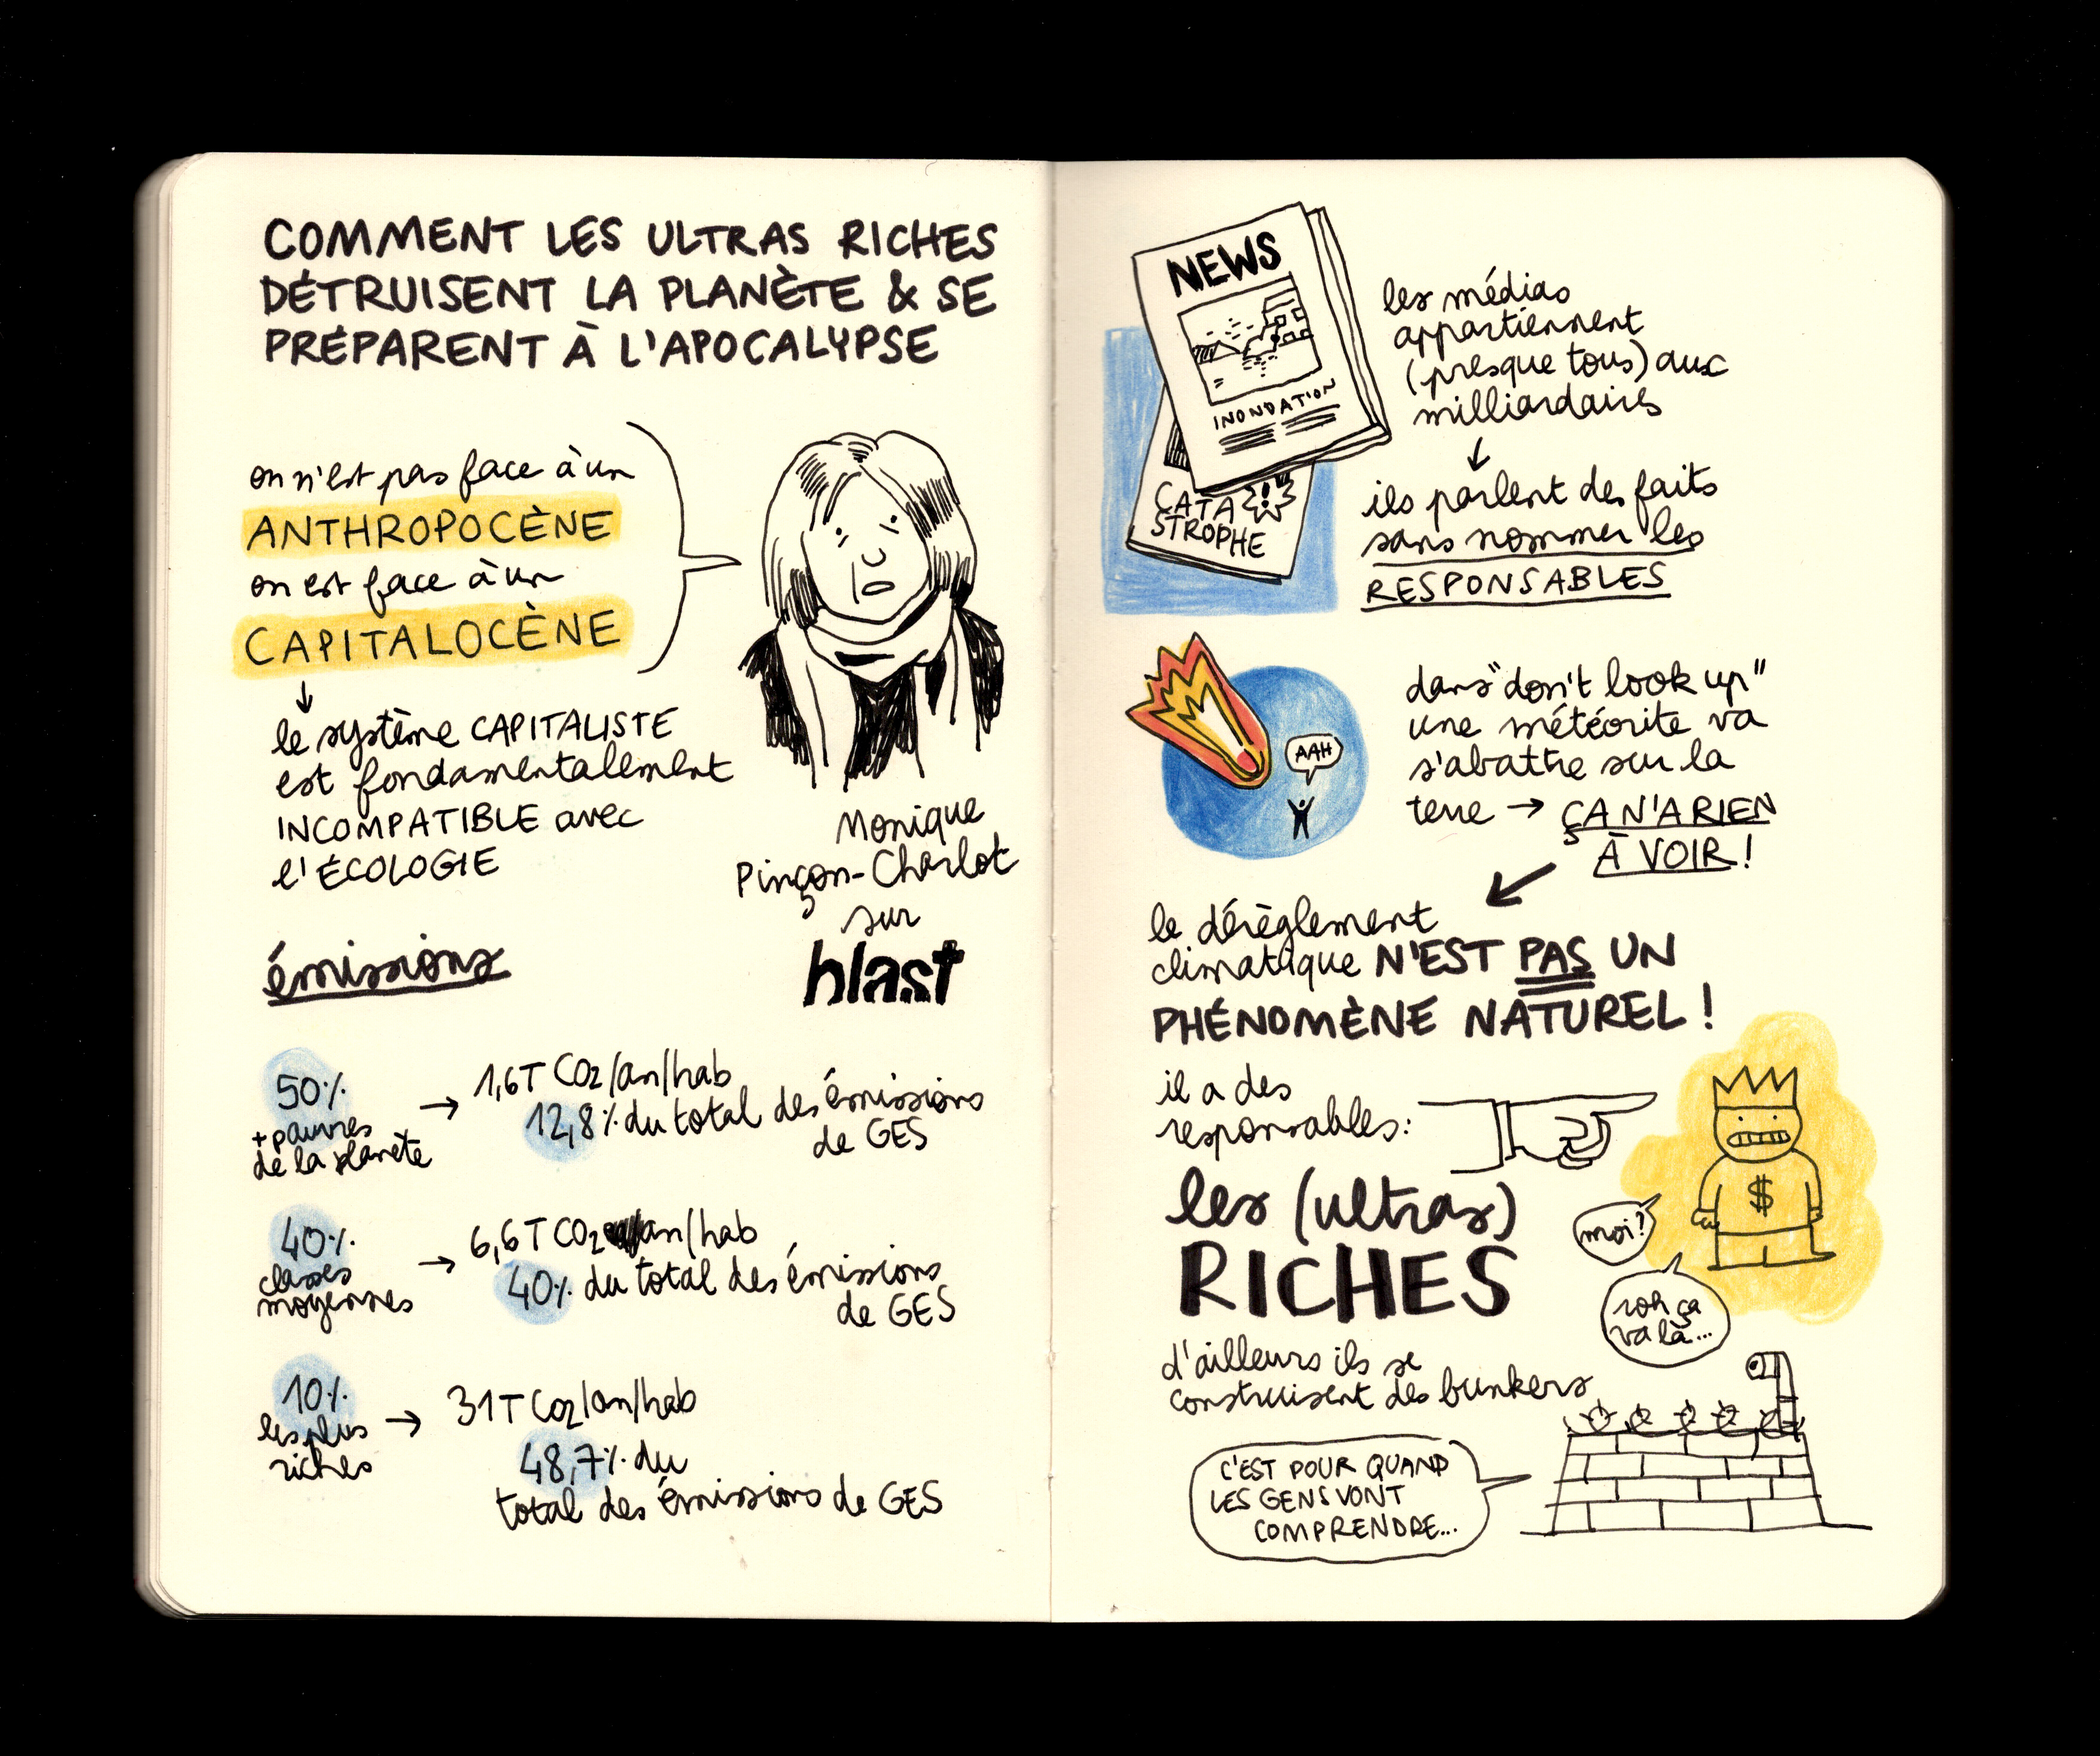 COMMENT LES ULTRAS RICHES
DÉTRUISENT LA PLANÈTE & SE
PRÉPARENT À L'APOCALYPSE
on n'est pas face à un
ANTHROPOCÈNE
on est face à un
CAPITALOCÈNE
↓
le système CAPITALISTE
est fondamentalement
INCOMPATIBLE avec
l'ÉCOLOGIE
Monique
Pinçon-Charlot
sur
blast
émissions
50%
+ pauvres
de la planète
→ 1,6T CO2/an/hab
12,8% du total des émissions
de GES
40%
classes
moyennes
→ 6,6T CO2/an/hab
40% du total des émissions
de GES
10%
les plus
riches
→ 31T CO2/an/hab
48,7% du
total des émissions de GES
NEWS
INONDATION
CATA
STROPHE
!
les médias
appartiennent
(presque tous) aux
milliardaires
↓
ils parlent des faits
sans nommer les
RESPONSABLES
AAH
dans "don't look up"
une météorite va
s'abattre sur la
terre → ÇA N'A RIEN
À VOIR!
le dérèglement
climatique N'EST PAS UN
PHÉNOMÈNE NATUREL!
il a des
responsables:
les (ultras)
RICHES
$
moi?
roh ça
va là...
d'ailleurs ils se
construisent des bunkers
C'EST POUR QUAND
LES GENS VONT
COMPRENDRE...